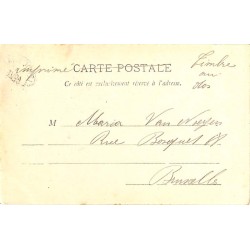 imprimé CARTE POSTALE Timbre
au
dos
Ce côté est exclusivement réservé à l'adresse.
M Maria Van
Rue Bosquet
Bruxelle